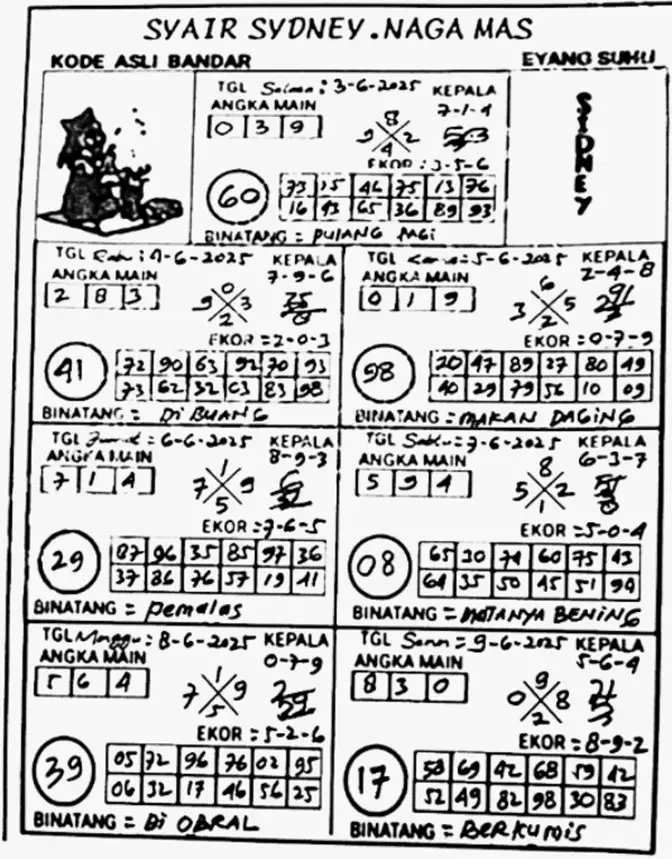 SYAIR SYDNEY.NAGA MAS
KODE ASLI BANDAR
EYANG SUHU
SIDNEY
TGL Selasa : 3-6-2025 KEPALA
ANGKA MAIN 7-1-4
0 3 9
8
9 2
4
EKOR : 3-5-6
60
73 15 46 75 13 76
16 43 65 36 89 93
BINATANG = PULANG PAGI
TGL Rabu : 4-6-2025 KEPALA
ANGKA MAIN 7-9-6
2 8 3
0
9 3
2
EKOR = 2-0-3
41
72 90 63 92 70 93
73 62 32 03 83 98
BINATANG = Di BUANG
TGL Kamis : 5-6-2025 KEPALA
ANGKA MAIN 2-4-8
0 1 9
6
3 5
2
EKOR : 0-7-9
98
20 47 89 27 80 49
40 29 79 56 10 09
BINATANG = MAKAN DAGING
TGL Jumat : 6-6-2025 KEPALA
ANGKA MAIN 8-9-3
7 1 4
1
7 9
5
EKOR = 7-6-5
29
87 96 35 85 97 36
37 86 76 57 19 41
BINATANG = Pemalas
TGL Sabtu : 7-6-2025 KEPALA
ANGKA MAIN 6-3-7
5 9 4
8
5 2
1
EKOR = 5-0-4
08
65 30 74 60 75 43
64 35 50 45 51 94
BINATANG = MATANYA BENING
TGL Minggu : 8-6-2025 KEPALA
ANGKA MAIN 0-7-9
5 6 4
1
7 9
5
EKOR = 5-2-6
39
05 72 96 76 02 95
06 32 17 46 56 25
BINATANG = Di OBRAL
TGL Senin = 9-6-2025 KEPALA
ANGKA MAIN 5-6-4
8 3 0
9
0 8
2
EKOR = 8-9-2
17
58 69 42 68 59 42
52 49 82 98 30 83
BINATANG = BERKUMIS